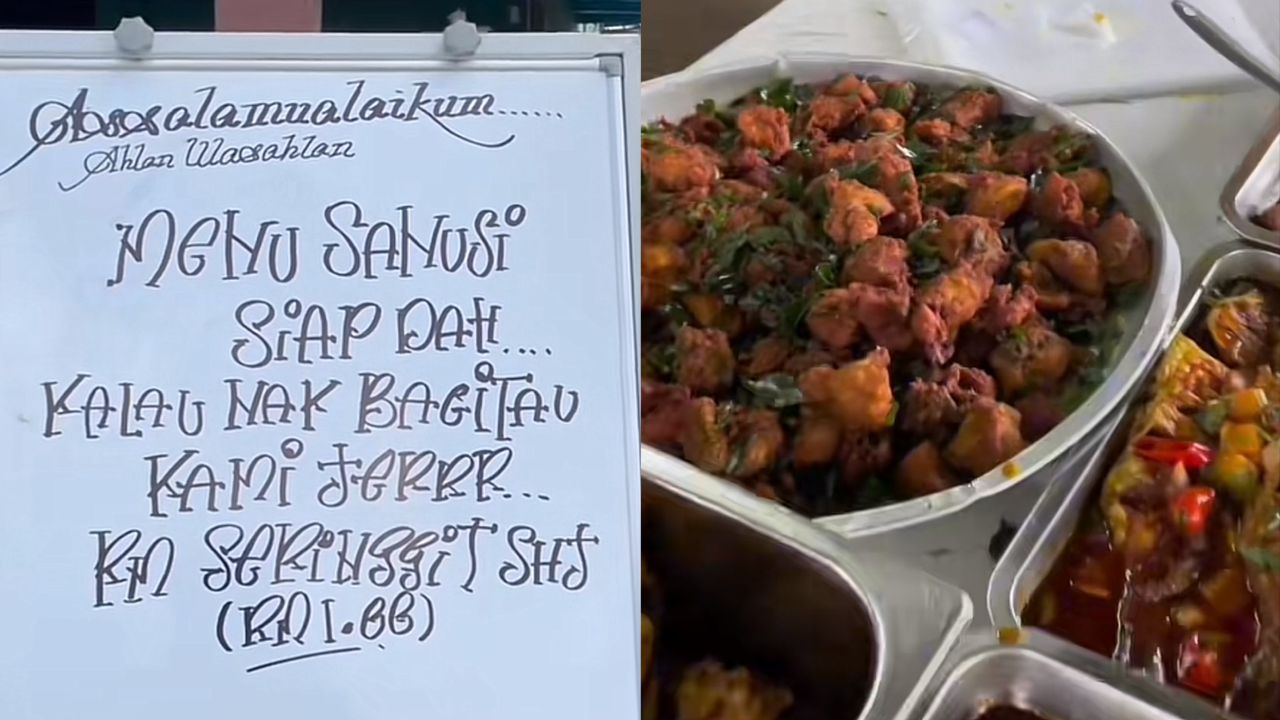 Assesalamualaikum......
Ahlan Wassahlan
MENU SANUSI
SIAP DAH....
KALAU NAK BAGITAU
KAMI JERRR...
RM SERINGGIT SHJ
(RM 1.00)